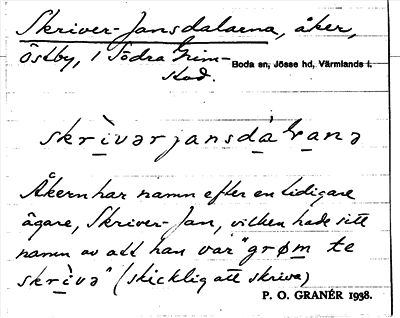 Skriver-Jansdalarna, åker,
Östby, i Södra Grim-
stad.
Boda sn, Jösse hd, Värmlands l.
skrìvərjansdàɭ̣anə
Åkern har namn efter en tidigare
ägare, Skriver-Jan, vilken hade sitt
namn av att han var "grøm te
skrìvə" (skicklig att skriva)
P. O. GRANÉR 1938.